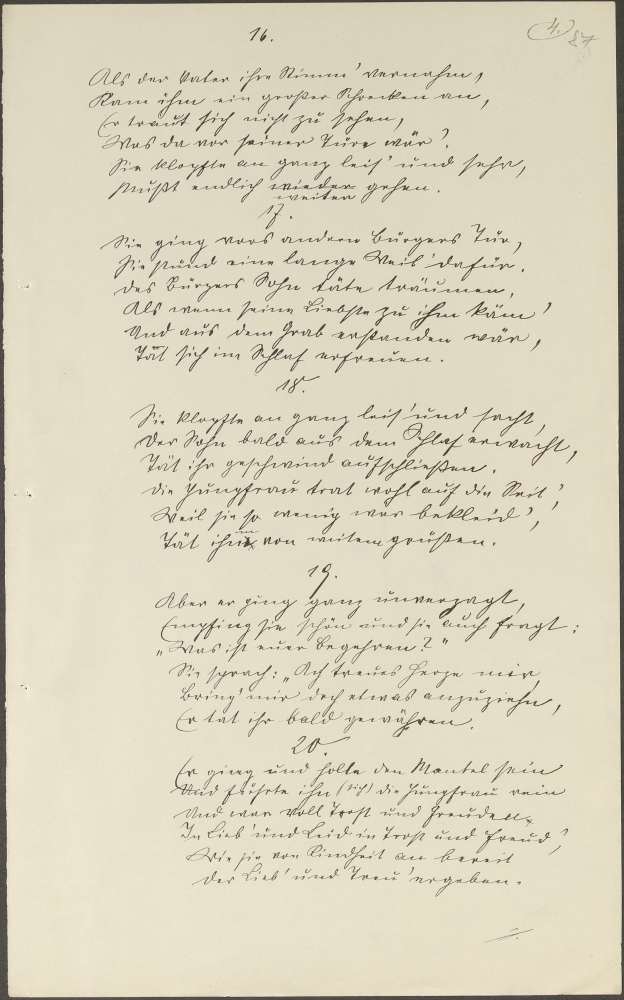 16.
4.
27
Als der Vater ihre Stimm' vernahm,
Kam ihm ein großer Schrecken an,
Er traut sich nicht zu sehen,
Was da vor seiner Türe wär'.
Sie klopfte an ganz leis' und sehr,
Mußt endlich wieder gehen.
weiter
17.
Sie ging vors andern Bürgers Tür,
Sie stund eine lange Weil' dafür.
Des Bürgers Sohn täte träumen,
Als wenn seine Liebste zu ihm käm'
Und aus dem Grab erstanden wär,
Tät sich im Schlaf erfreuen.
18.
Sie klopfte an ganz leis' und sacht,
Der Sohn bald aus dem Schlaf erwacht,
Tät ihr geschwind aufschließen.
Die Jungfrau trat wohl auf die Seit',
Weil sie so wenig war bekleid',
Tät ihn von weitem grüßen.
19.
Aber er ging ganz unverzagt,
Empfing sie schön und sie auch fragt:
"Was ist euer Begehren?"
Sie sprach: „Ach treues Herze mein,
Bring' mir doch etwas anzuziehn,
Er tat ihr bald gewähren.
20.
Er ging und holte den Mantel sein
Und führte ihn (sich) die Jungfrau rein
Und war voll Trost und Freuden.
In Lieb' und Leid in Trost und Freud,'
Wie sie von Kindheit an bereit
Der Lieb' und Treu' ergeben.